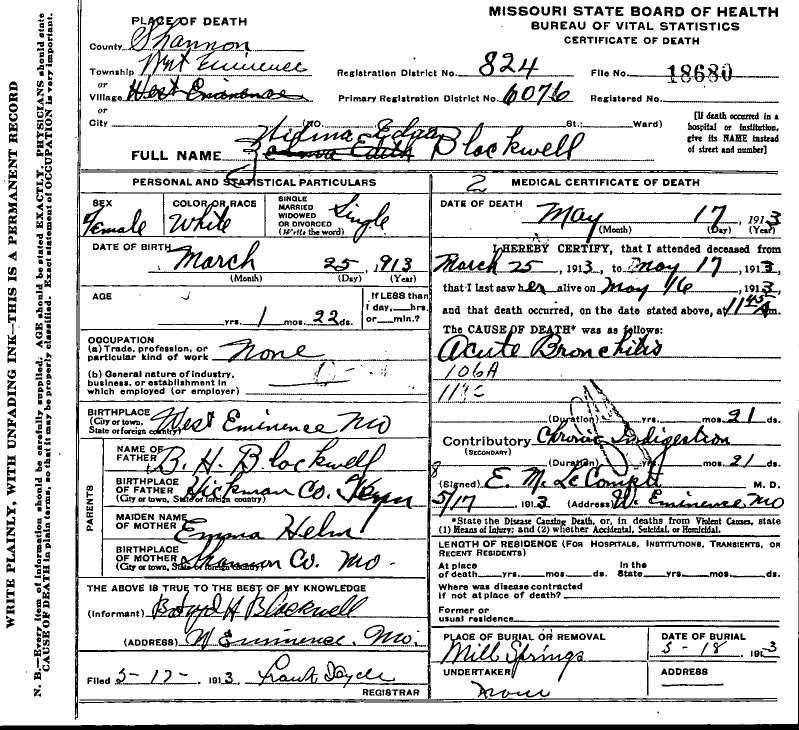 MISSOURI STATE BOARD OF HEALTH
BUREAU OF VITAL STATISTICS
CERTIFICATE OF DEATH
PLACE OF DEATH
County Shannon
Township West Eminence
or
Village West Eminence
or
City (NO. St.; Ward)
Registration District No. 824 File No. 18680
Primary Registration District No. 6076 Registered No.
[If death occurred in a
hospital or institution,
give its NAME instead
of street and number]
Edgar
FULL NAME Edith Blackwell
PERSONAL AND STATISTICAL PARTICULARS
SEX Female
COLOR OR RACE White
SINGLE
MARRIED
WIDOWED
OR DIVORCED
(Write the word) Single
DATE OF BIRTH March 25, 1913
(Month) (Day) (Year)
AGE
yrs. 1 mos. 22 ds.
If LESS than
1 day, hrs.
or min.?
OCCUPATION
(a) Trade, profession, or
particular kind of work None
(b) General nature of industry,
business, or establishment in
which employed (or employer)
BIRTHPLACE
(City or town,
State or foreign country) West Eminence Mo
PARENTS
NAME OF
FATHER B. H. Blackwell
BIRTHPLACE
OF FATHER Hickman Co. Tenn
(City or town, State or foreign country)
MAIDEN NAME
OF MOTHER Emma Helm
BIRTHPLACE
OF MOTHER Shannon Co. Mo.
(City or town, State or foreign country)
THE ABOVE IS TRUE TO THE BEST OF MY KNOWLEDGE
(Informant) Boyd H Blackwell
(ADDRESS) W Eminence. Mo.
Filed 5-17- 1913
REGISTRAR
2 MEDICAL CERTIFICATE OF DEATH
DATE OF DEATH May 17, 1913
(Month) (Day) (Year)
I HEREBY CERTIFY, that I attended deceased from
March 25, 1913, to May 17, 1913,
that I last saw her alive on May 16, 1913,
and that death occurred, on the date stated above, at 11 45 A m.
The CAUSE OF DEATH* was as follows:
Acute Bronchitis
106A
(Duration) yrs. mos. 21 ds.
Contributory Chronic Indigestion
(SECONDARY)
(Duration) yrs. mos. 21 ds.
8
(Signed) E. M. LeCompte M. D.
5/17, 1913 (Address) W. Eminence Mo
*State the Disease Causing Death, or, in deaths from Violent Causes, state
(1) Means of Injury; and (2) whether Accidental, Suicidal, or Homicidal.
LENGTH OF RESIDENCE (For Hospitals, Institutions, Transients, or
Recent Residents)
At place
of death yrs. mos. ds.
In the
State yrs. mos. ds.
Where was disease contracted
if not at place of death?
Former or
usual residence
PLACE OF BURIAL OR REMOVAL
Mill Springs
DATE OF BURIAL
5-18, 1913
UNDERTAKER
None
ADDRESS
WRITE PLAINLY, WITH UNFADING INK—THIS IS A PERMANENT RECORD
N. B.—Every item of information should be carefully supplied. AGE should be stated EXACTLY. PHYSICIANS should state
CAUSE OF DEATH in plain terms, so that it may be properly classified. Exact statement of OCCUPATION is very important.